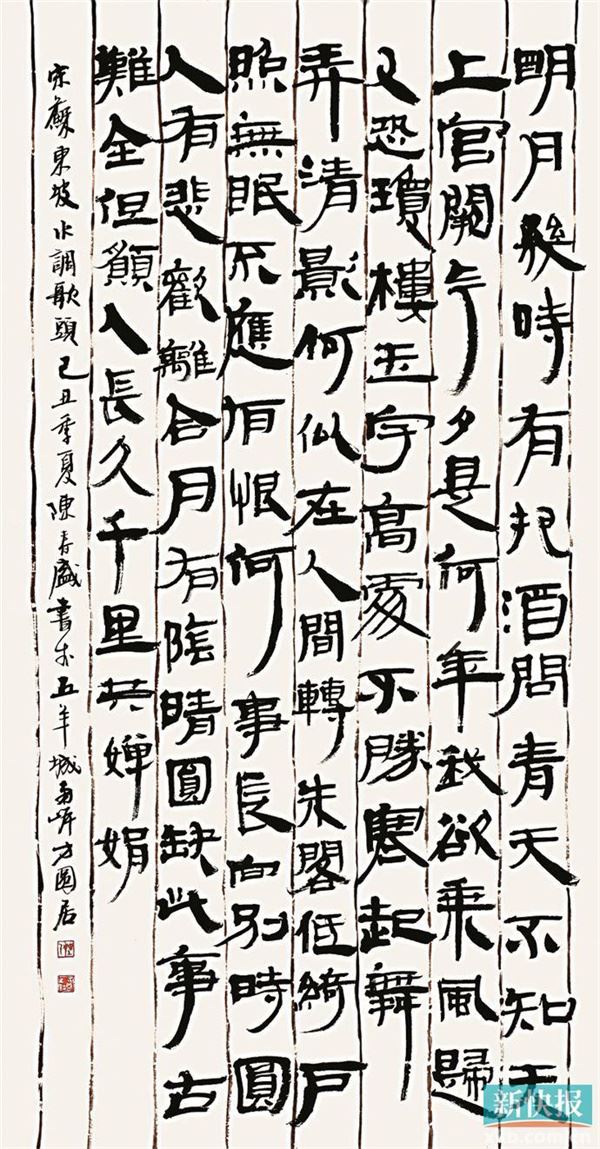 明月幾時有把酒問青天不知天
上宮闕今夕是何年我欲乘風歸
又恐瓊樓玉宇高處不勝寒起舞
弄清影何似在人間轉朱閣低綺戶
照無眠不應有恨何事長向別時圓
人有悲歡離合月有陰晴圓缺此事古
難全但願人長久千里共嬋娟
宋蘇東坡水調歌頭己丑季夏陳春盛書於五羊城南岸方圓居
新快报
xkb.com.cn